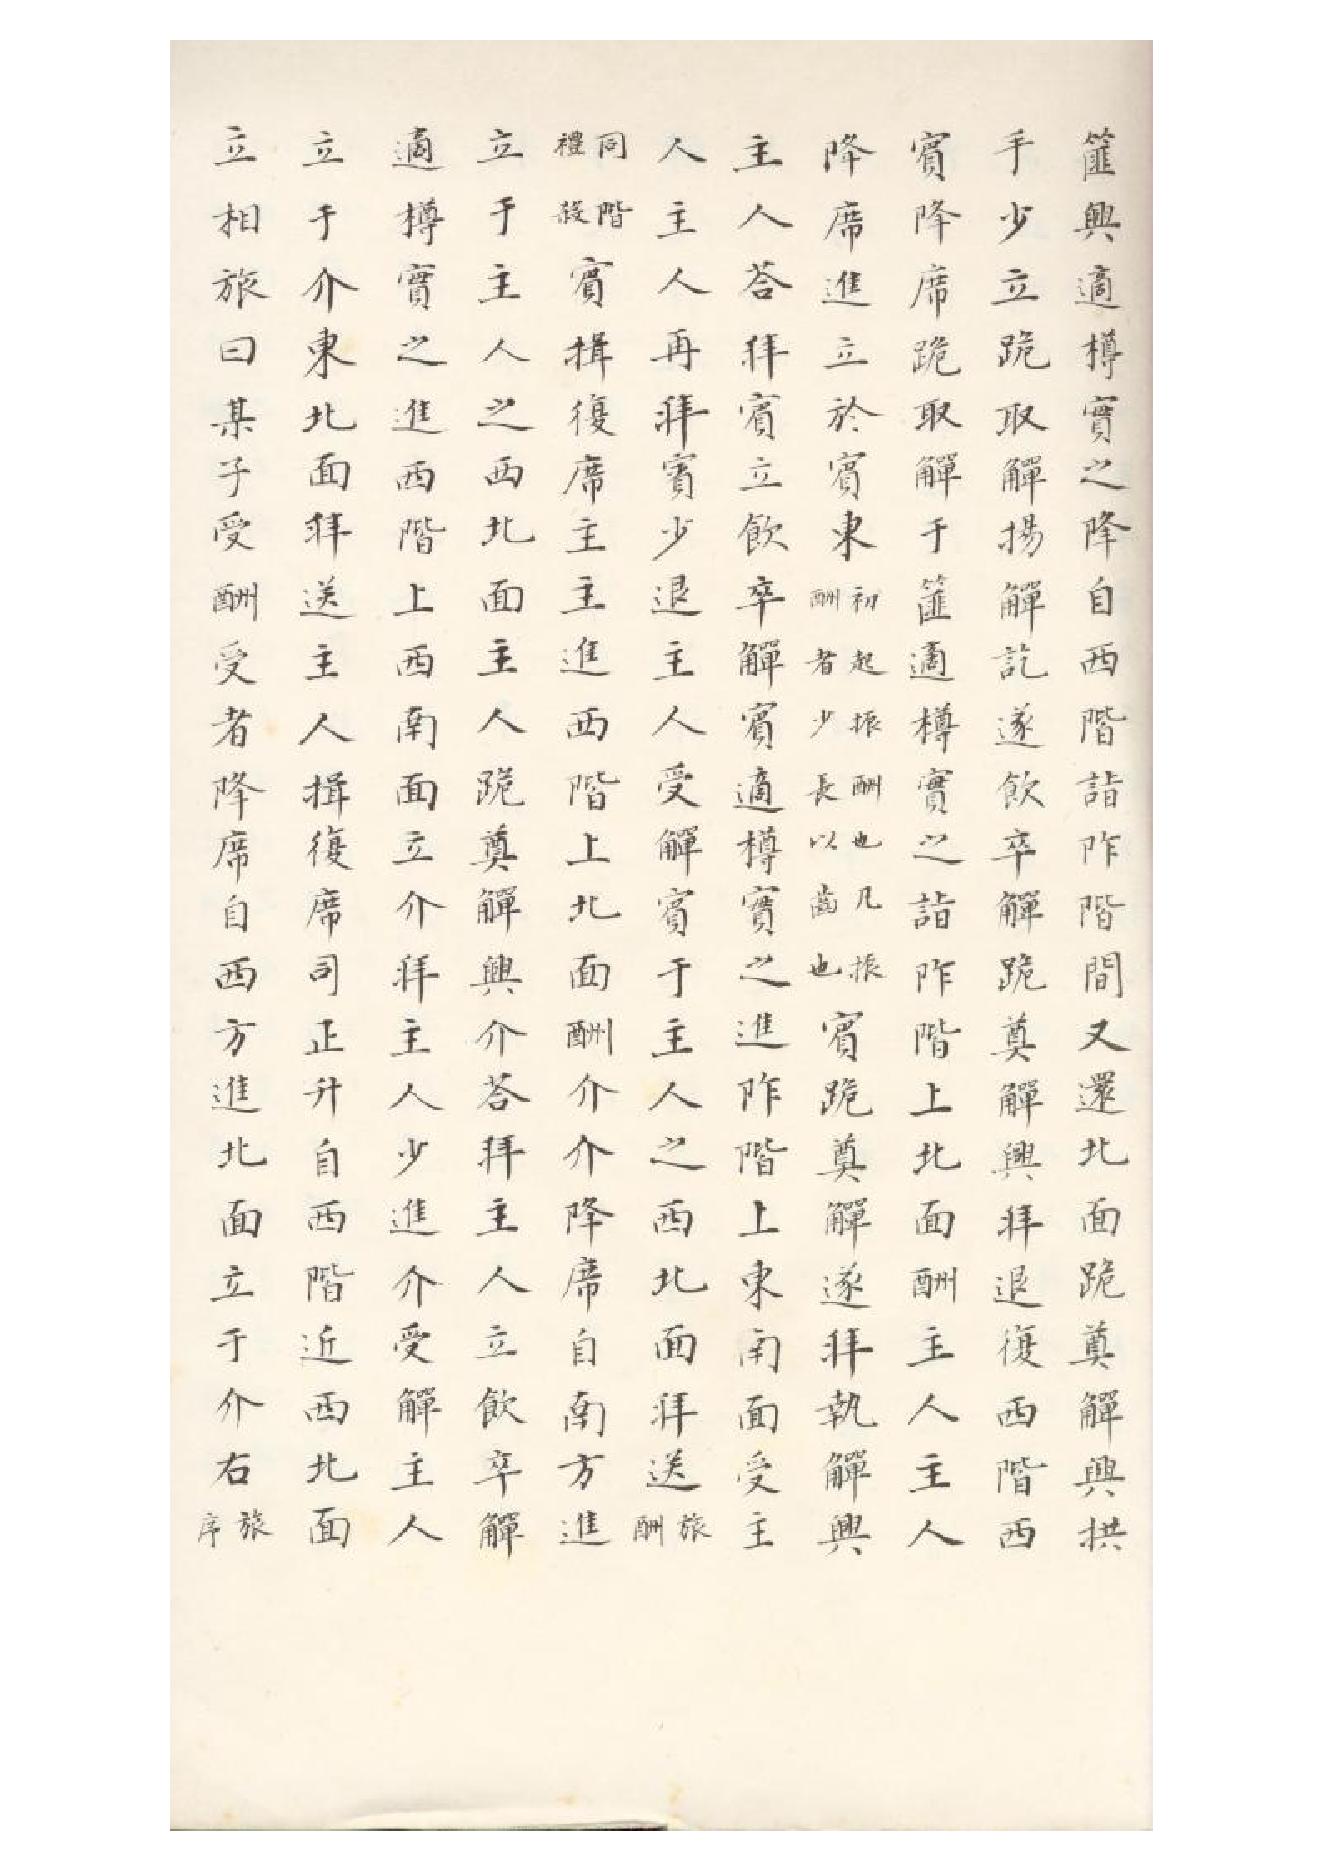 篚興適樽實之降自西階詣阼階間又還北面跪奠觶興拱
手少立跪取觶揚觶訖遂飲卒觶跪奠觶興拜退復西階西
賓降席跪取觶于篚適樽實之詣阼階上北面酬主人主人
降席進立於賓東初起振酬也凡振酬者少長以齒也賓跪奠觶遂拜執觶興
主人荅拜賓立飲卒觶賓適樽實之進阼階上東南面受主
人主人再拜賓少退主人受觶賓于主人之西北面拜送旅酬
同階禮殺賓揖復席主主進西階上北面酬介介降席自南方進
立于主人之西北面主人跪奠觶興介荅拜主人立飲卒觶
適樽實之進西階上西南面立介拜主人少進介受觶主人
立于介東北面拜送主人揖復席司正升自西階近西北面
立相旅曰某子受酬受者降席自西方進北面立于介右旅序